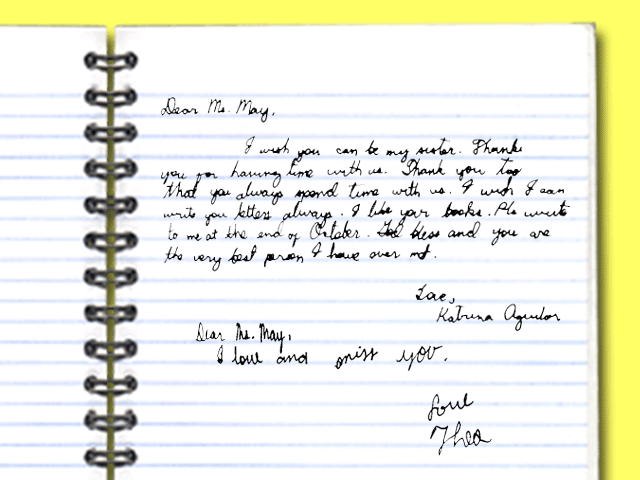 Dear Ms. May,
I wish you can be my sister. Thank
you for having time with us. Thank you too
that you always spend time with us. I wish I can
write you letters always. I like your books. Pls write
to me at the end of October. God bless and you are
the very best person I have ever met.
Love,
Katrina Aguilar
Dear Ms. May,
I love and miss you.
Love
Thea